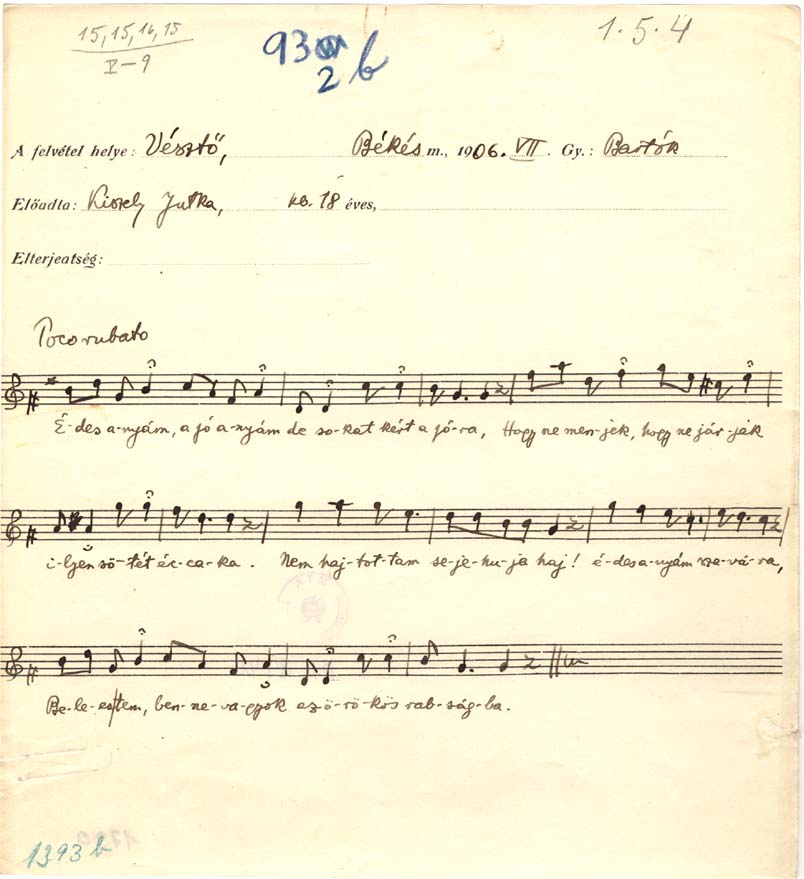 15, 15, 16, 15
V – 9
93
2 b
1. 5. 4
A felvétel helye: Vésztő, Békés m., 1906. VII. Gy.: Bartók
Előadta: Kiszely Jutka, kb. 18 éves,
Elterjedtség:
Poco rubato
É-des a-nyám, a jó a-nyám de so-kat kért a jó-ra, Hogy ne men-jek, hogy ne jár-jak
i-lyen sö-tét éc-ca-ka. Nem haj-tot-tam se-je-hu-ja haj! é-des a-nyám sza-vá-ra,
Be-le-es-tem, ben-ne va-gyok az ö-rö-kös rab-ság-ba.
1393 b